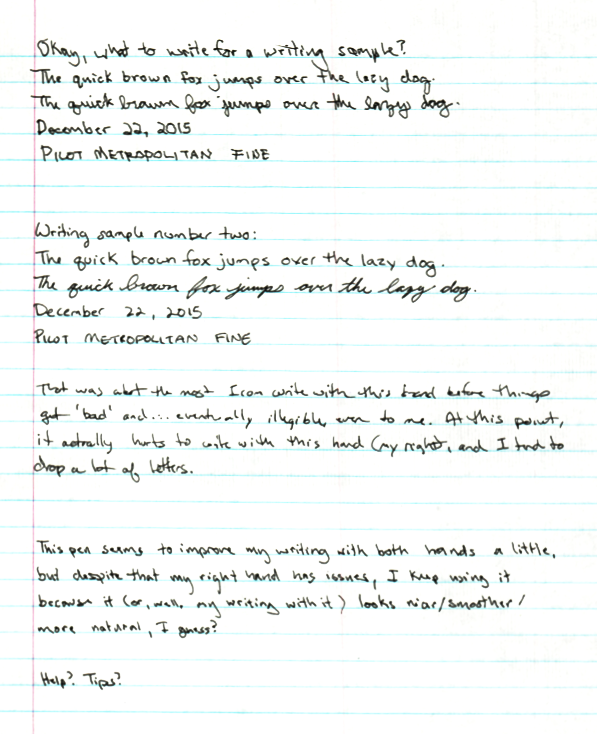 Okay, what to write for a writing sample?
The quick brown fox jumps over the lazy dog.
The quick brown fox jumps over the lazy dog.
December 22, 2015
PILOT METROPOLITAN FINE
Writing sample number two:
The quick brown fox jumps over the lazy dog.
The quick brown fox jumps over the lazy dog.
December 22, 2015
PILOT METROPOLITAN FINE
That was abt the most I can write with this hand before things
get 'bad' and... eventually illegible, even to me. At this point,
it actually hurts to write with this hand (my right, and I tend to
drop a lot of letters.
This pen seems to improve my writing with both hands a little,
but despite that my right hand has issues, I keep using it
because it (or, well, my writing with it) looks nicer/smoother/
more natural, I guess?
Help? Tips?